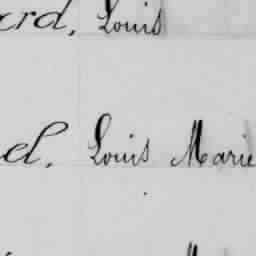 ard, Louis
el, Louis Marie